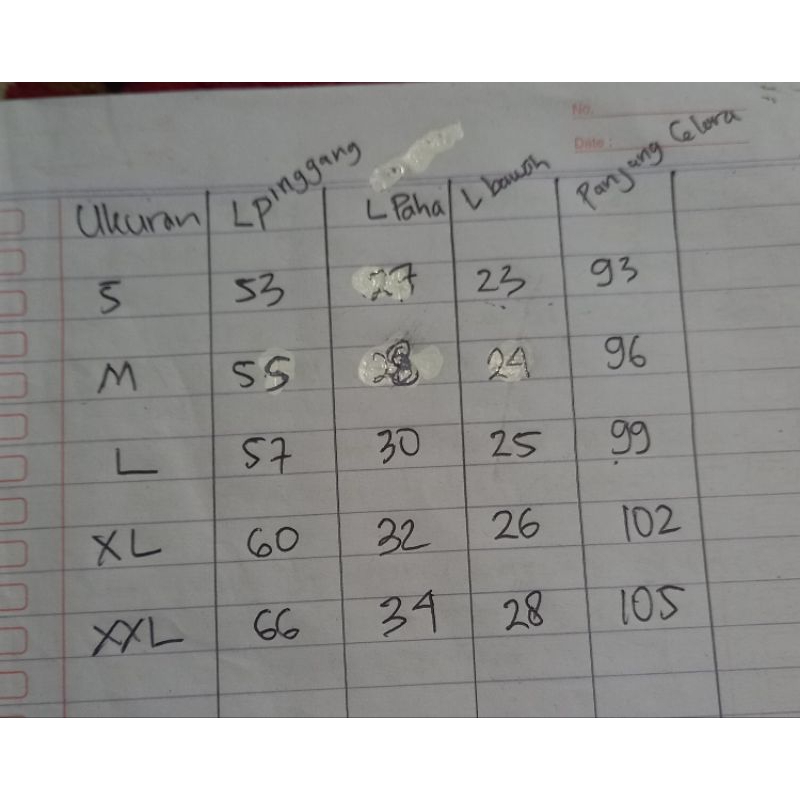 No.
Date :
Ukuran L Pinggang L Paha L bawah Panjang Celana
S 53 27 23 93
M 55 28 24 96
L 57 30 25 99
XL 60 32 26 102
XXL 66 34 28 105